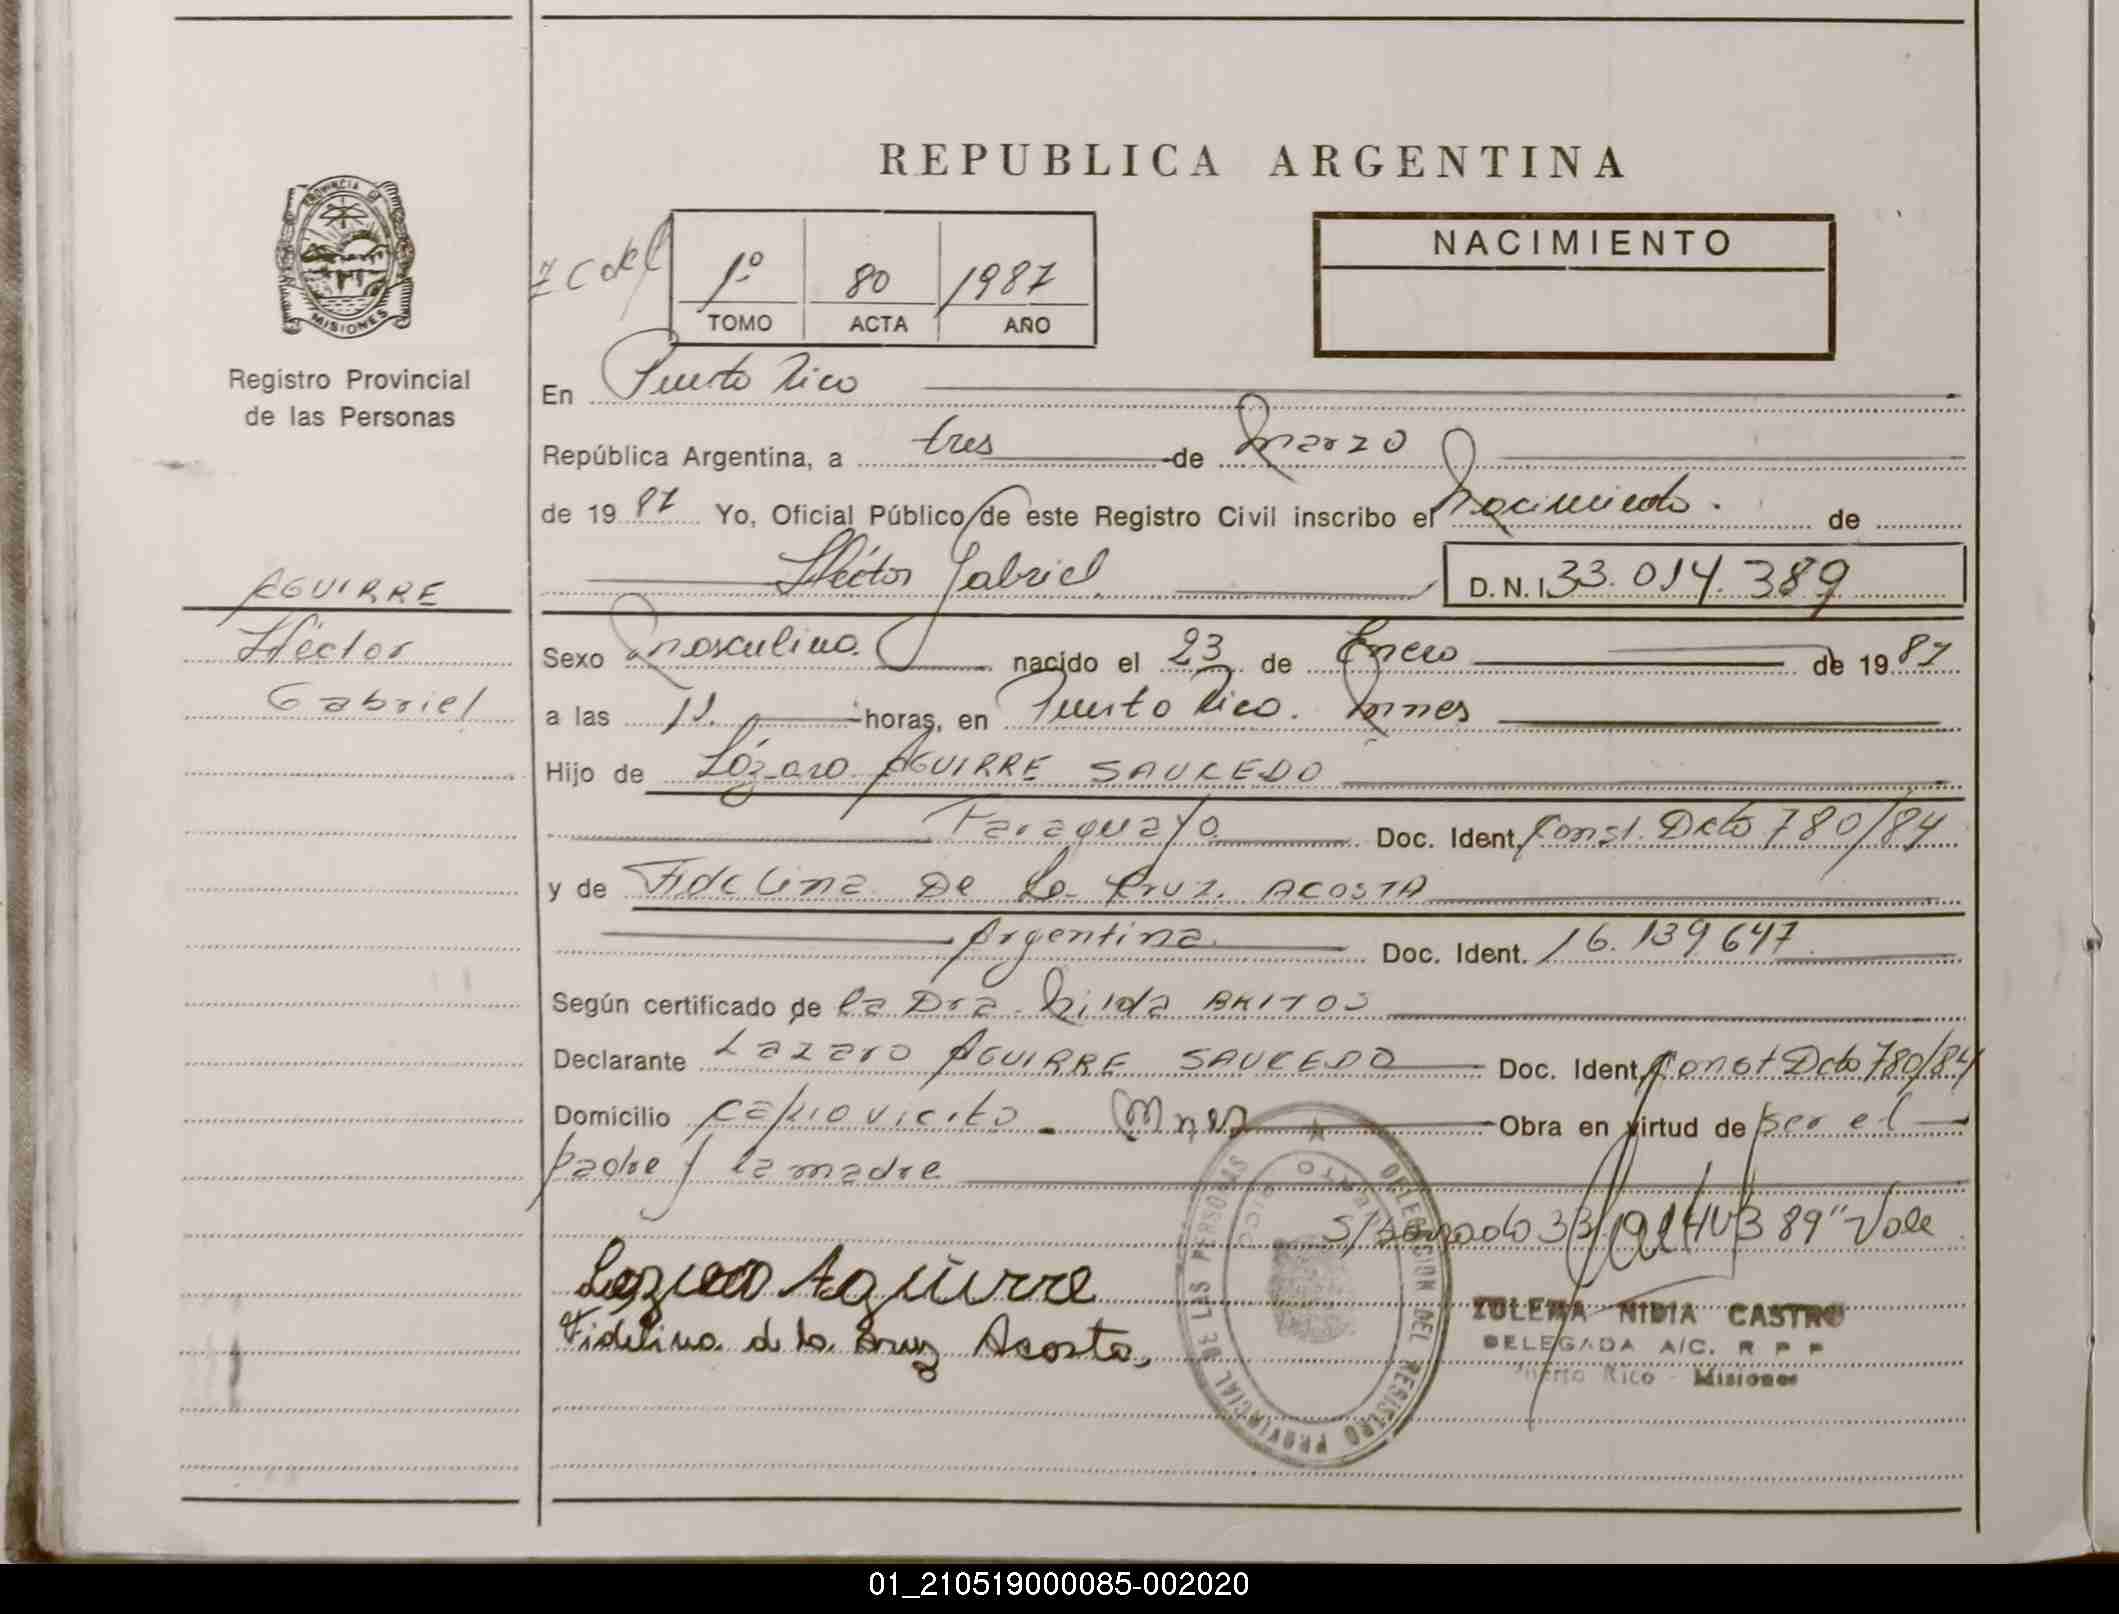 REPUBLICA ARGENTINA
PROVINCIA D
MISIONES
Registro Provincial
de las Personas
1º 80 1987
TOMO ACTA AÑO
NACIMIENTO
En Puerto Rico
República Argentina, a tres de Marzo
de 1987 Yo, Oficial Público de este Registro Civil inscribo el Nacimiento. de
Héctor Gabriel D.N.I. 33.014.389
AGUIRRE
Héctor
Gabriel
Sexo Masculino nacido el 23 de Enero de 1987
a las 11. horas, en Puerto Rico. Mnes
Hijo de Lázaro AGUIRRE SAUCEDO
Paraguayo Doc. Ident. Const. Dcto 780/84
y de Fidelina De La Cruz ACOSTA
Argentina Doc. Ident. 16.139.647
Según certificado de la Dra. Nilda BRITOS
Declarante Lazaro AGUIRRE SAUCEDO Doc. Ident. Const Dcto 780/84
Domicilio Capiovicito. Mnes Obra en virtud de ser el
padre y la madre
Vale
Lazaro Aguirre
Fidelina de la Cruz Acosta,
DELEGACION DEL REGISTRO PROVINCIAL DE LAS PERSONAS
PUERTO RICO
ZULEMA NIDIA CASTRO
DELEGADA A/C. R P P
Puerto Rico - Misiones
01_210519000085-002020